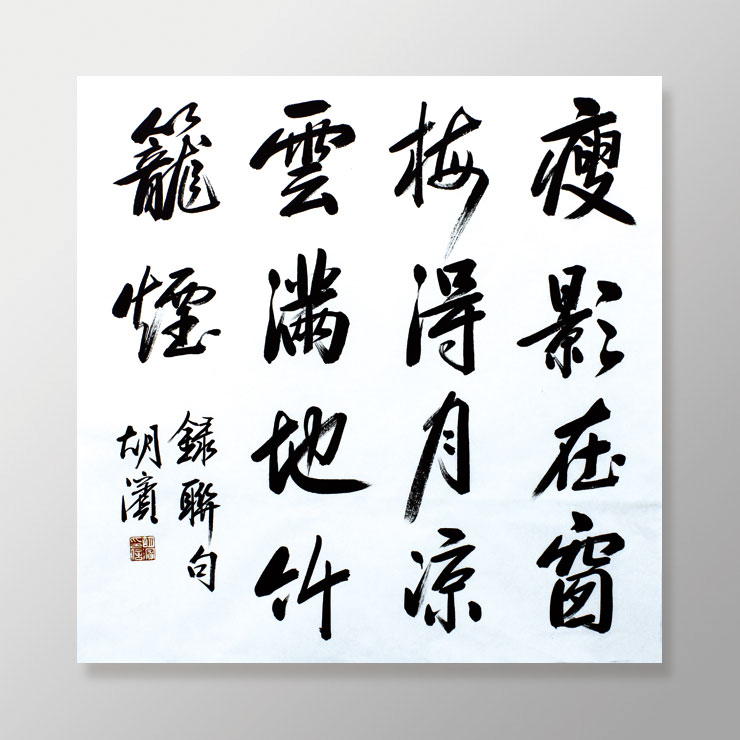 瘦影在窗
梅得月凉
雲满地竹
籠煙
録聯句
胡濱